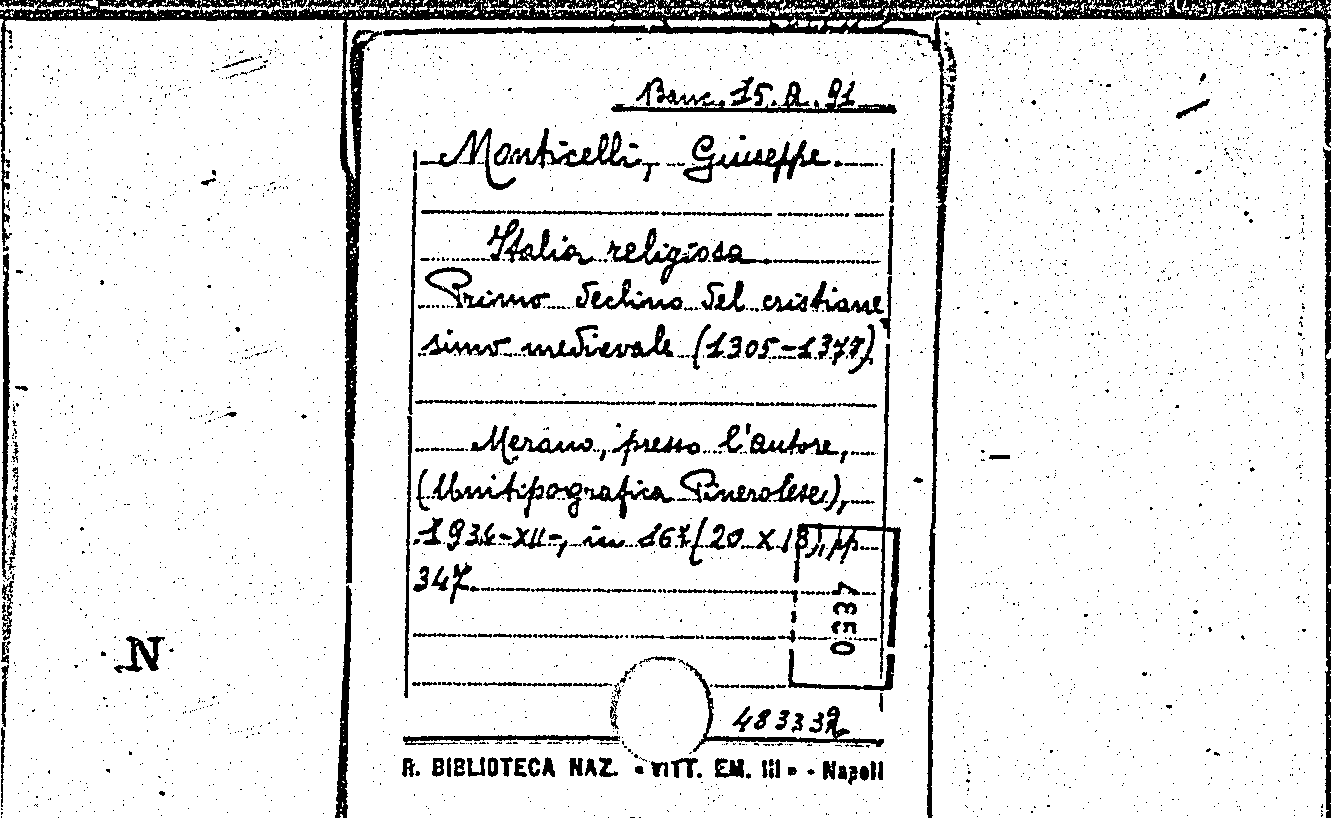 Banc. 15. A. 91
Monticelli, Giuseppe.
Italia religiosa.
Primo declino del cristiane
simo medievale (1305-1377).
Merano, presso l'autore,
(Unitipografica Pinerolese),
1934-XII-, in 16º (20 x 13), pp
347.
4350
48333
R. BIBLIOTECA NAZ. « VITT. EM. III » - Napoli
N